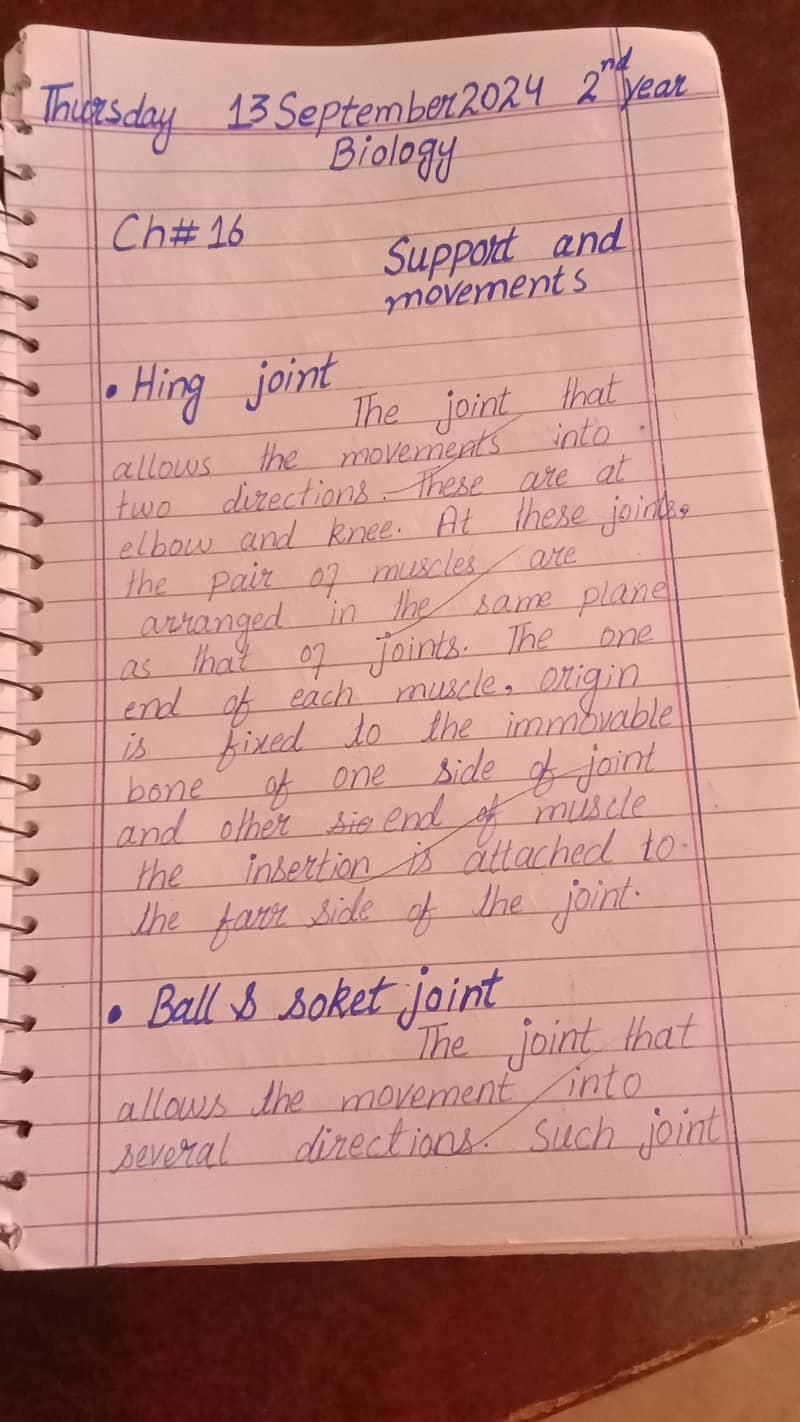 Thursday 13 September 2024 2nd year
Biology
Ch# 16
Support and
movements
• Hing joint
The joint that
allows the movements into
two directions. These are at
elbow and knee. At these joints,
the pair of muscles are
arranged in the same plane
as that of joints. The one
end of each muscle, origin
is fixed to the immovable
bone of one side of joint
and other sie end of muscle
the insertion is attached to
the farr side of the joint.
• Ball & soket joint
The joint that
allows the movement into
several directions. Such joint